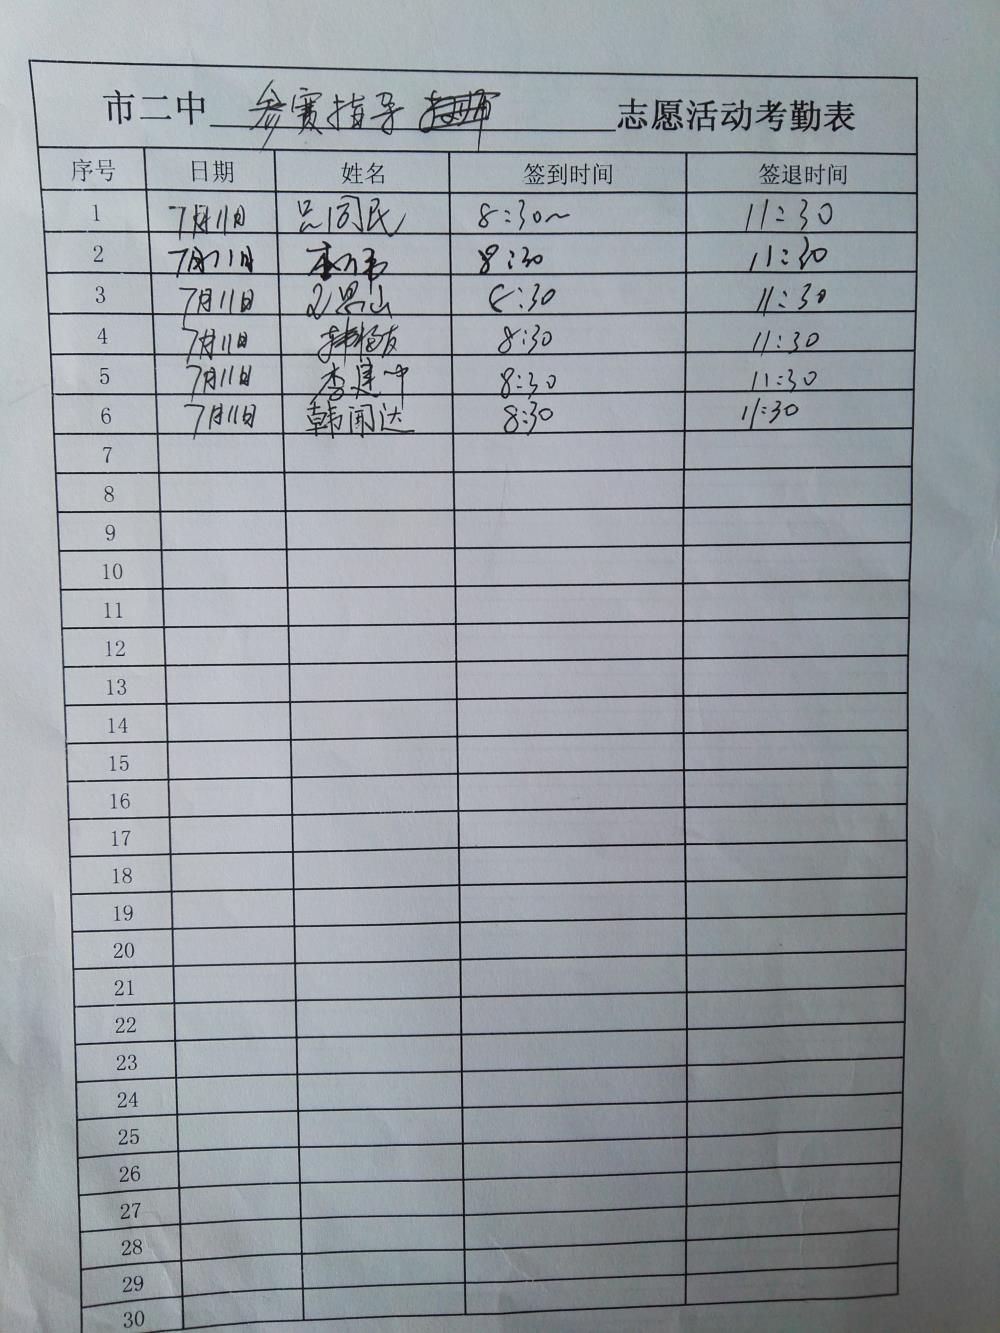 市二中 参赛指导 志愿活动考勤表
序号 日期 姓名 签到时间 签退时间
1 7月11日 吕同民 8:30~ 11:30
2 7月11日 8:30 11:30
3 7月11日 8:30 11:30
4 7月11日 8:30 11:30
5 7月11日 李建中 8:30 11:30
6 7月11日 韩闻达 8:30 11:30
7
8
9
10
11
12
13
14
15
16
17
18
19
20
21
22
23
24
25
26
27
28
29
30